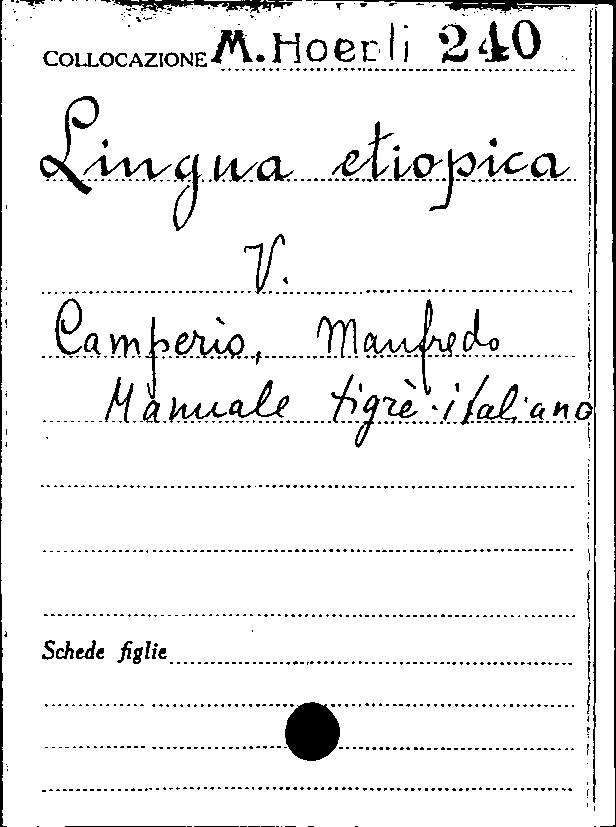 COLLOCAZIONE M. Hoepli 240
Lingua etiopica
V.
Camperio, Manfredo
Manuale tigrè-italiano
Schede figlie